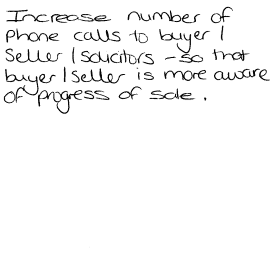 Increase number of
phone calls to buyer /
Seller / Solicitors - so that
buyer / Seller is more aware
of progress of sale.